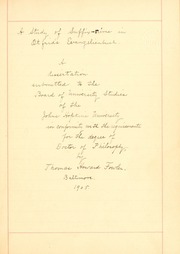 A Study of Suffix-rime in
Otfrids Evangelienbuch
A
Dissertation
submitted to the
Board of University Studies
of the
Johns Hopkins University
in conformity with the requirements
for the degree of
Doctor of Philosophy
by
Thomas Howard Fowler
Baltimore
1908